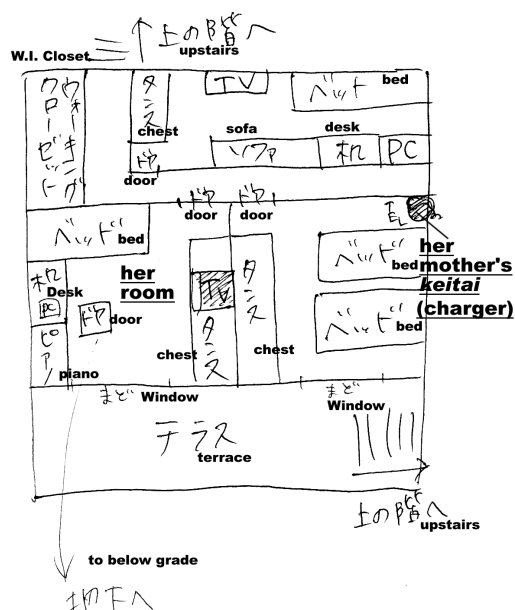 上の階へ
upstairs
W.I. Closet
ウォークイング
クローゼット
タンス
chest
TV
ベッド
bed
sofa
ソファ
desk
机
PC
ドア
door
ドア
door
ドア
door
TEL
her
mother's
keitai
(charger)
ベッド
bed
her
room
机
Desk
PC
ドア
door
ピアノ
piano
TV
タンス
chest
タンス
chest
ベッド
bed
ベッド
bed
まど
Window
まど
Window
テラス
terrace
上の階へ
upstairs
to below grade
地下へ